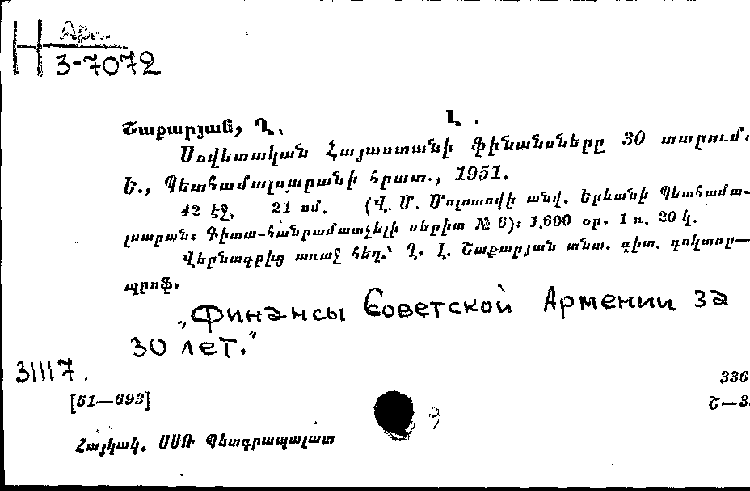 Н Арм.
3-7072
Շաքարյան, Ղ. Լ.
Սովետական Հայաստանի ֆինանսները 30 տարում.
Ե., Պետական համալսարանի հրատ., 1951.
42 էջ. 21 սմ. (Վ. Մ. Մոլոտովի անվ. Երևանի Պետհամա-
լսարան։ Գիտա-հանրամատչելի սերիա № 6)։ 1,600 օր. 1 ռ. 20 կ.
Վերնագրից առաջ հեղ.՝ Ղ. Լ. Շաքարյան տնտ. գիտ. դոկտոր—
պրոֆ.
„Финансы Советской Армении за
30 лет."
31117.
336
[51—693]
Շ—
Հայկակ. ՍՍՌ Պետգրապալատ